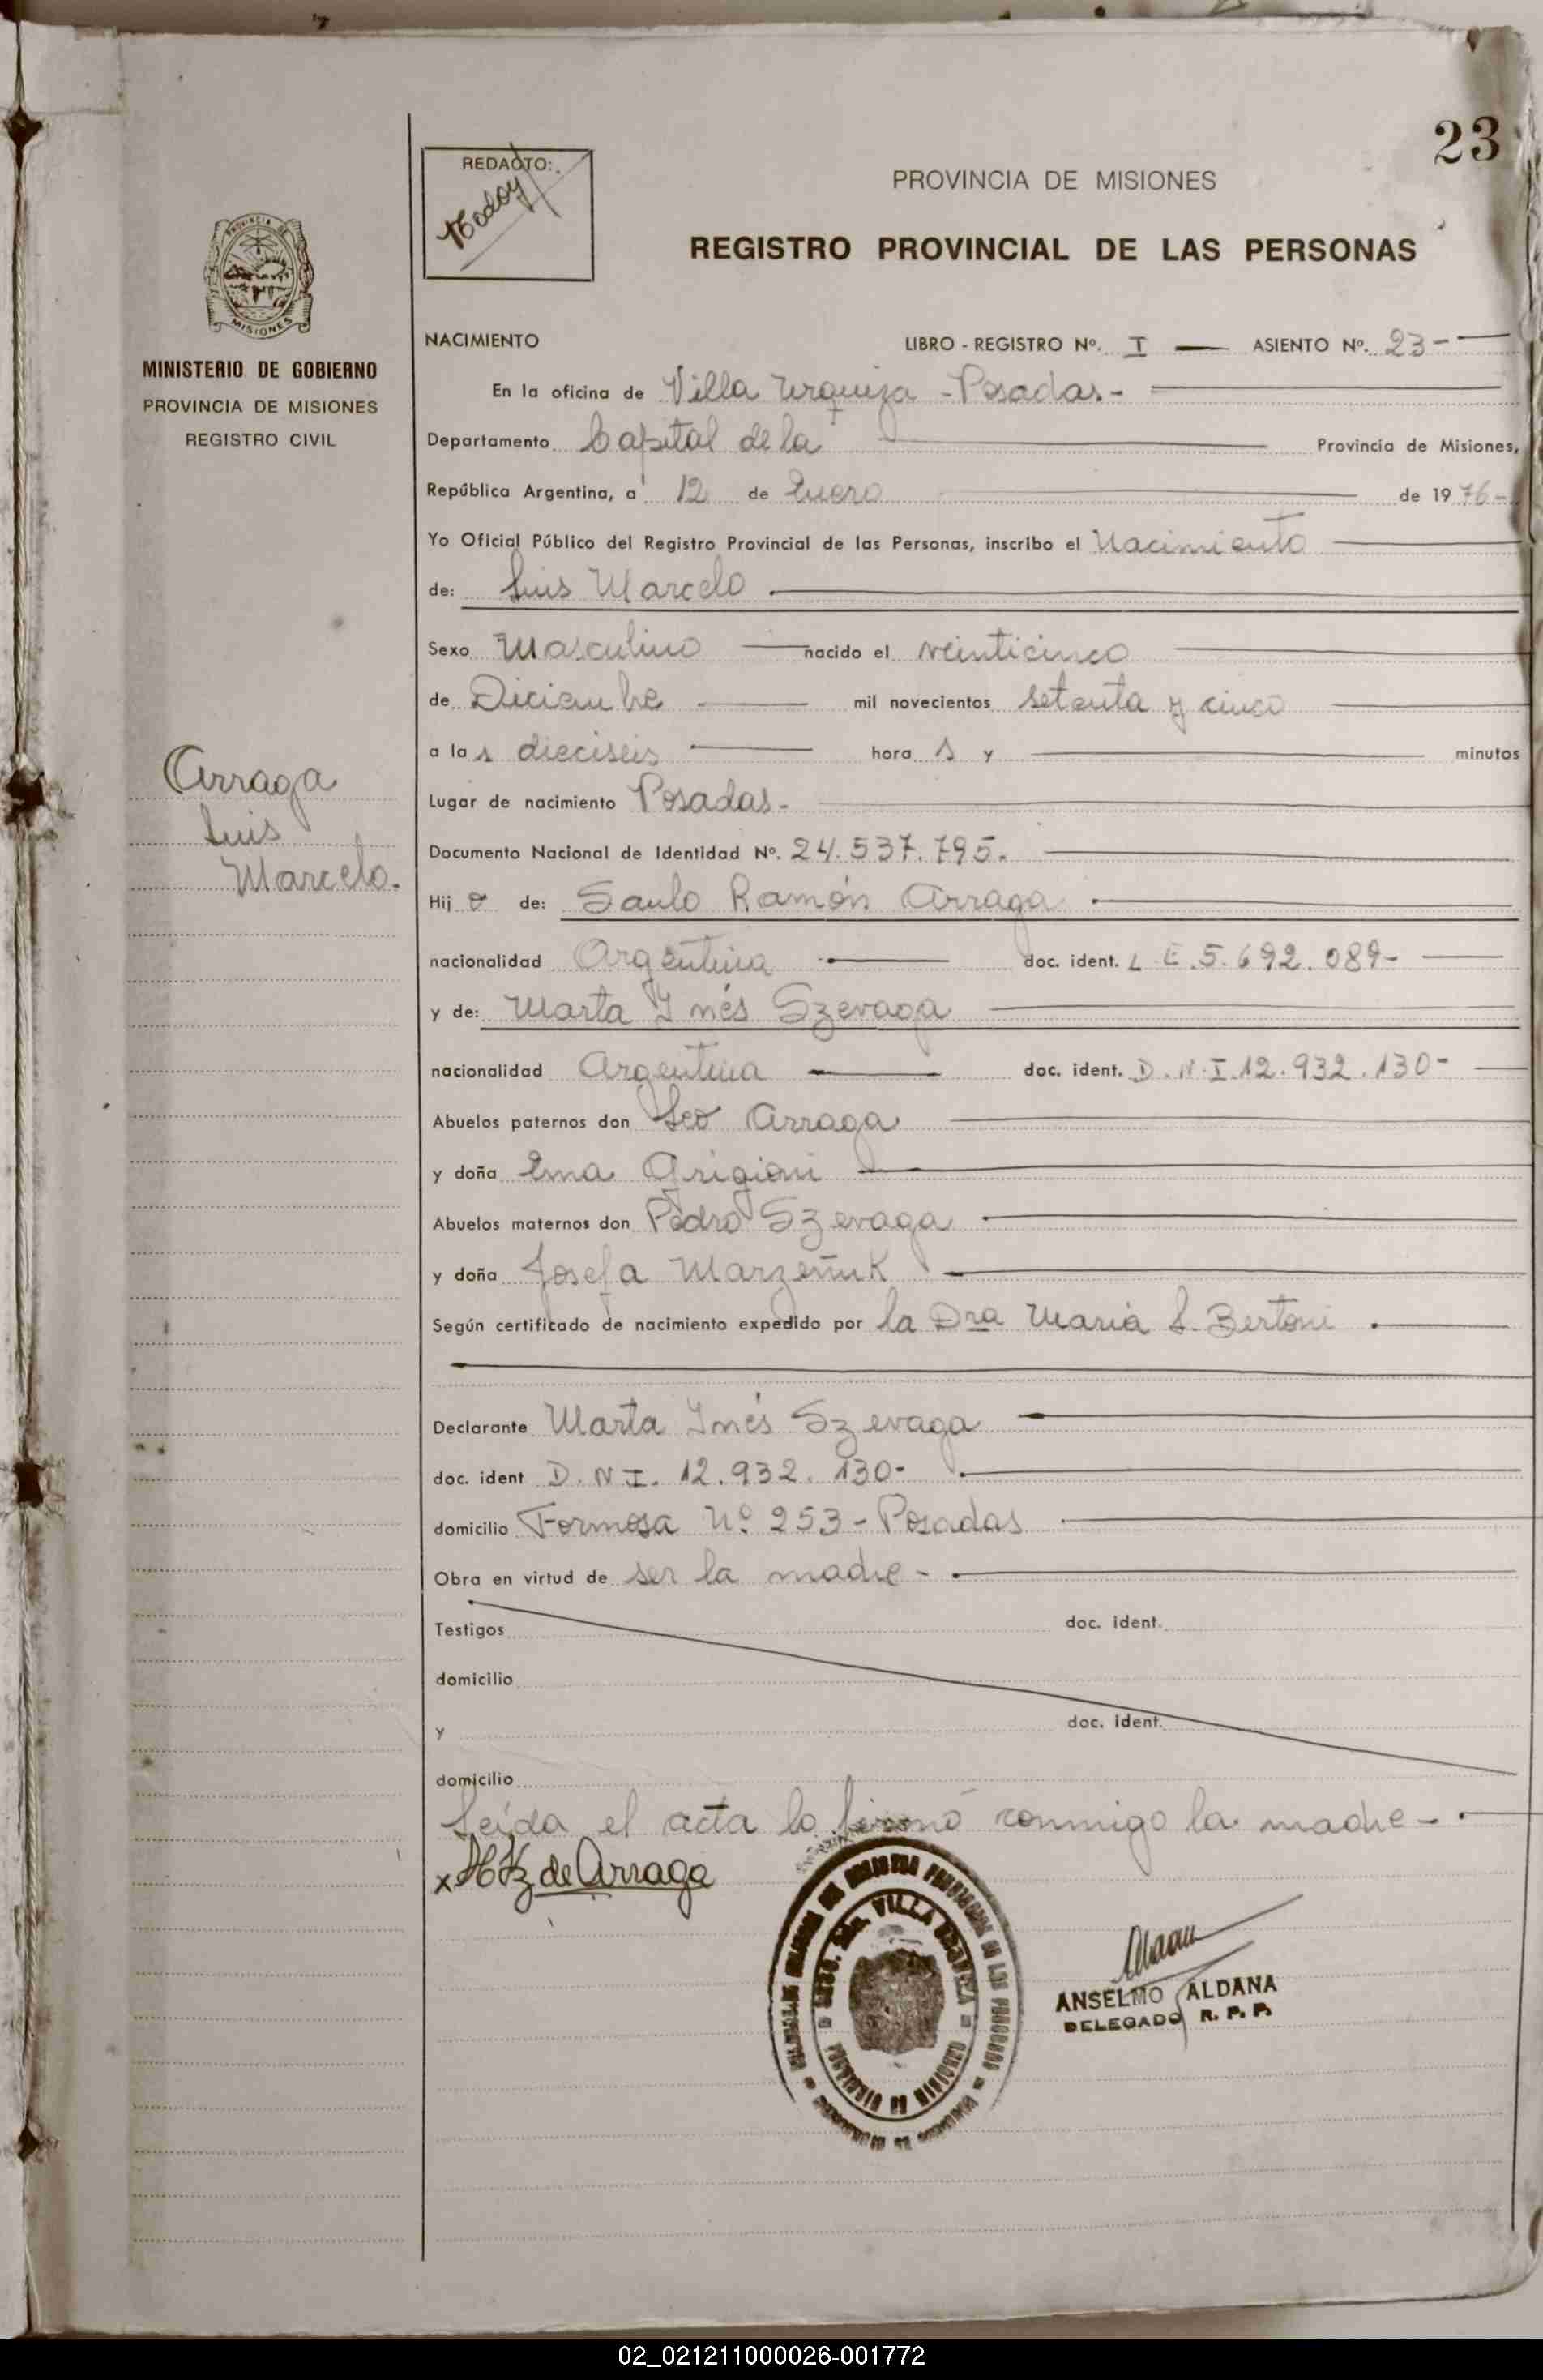 23
REDACTO:
Godoy
PROVINCIA DE MISIONES
REGISTRO PROVINCIAL DE LAS PERSONAS
MISIONES
MINISTERIO DE GOBIERNO
PROVINCIA DE MISIONES
REGISTRO CIVIL
NACIMIENTO LIBRO - REGISTRO Nº. I — ASIENTO Nº. 23 -
En la oficina de Villa Urquiza - Posadas. -
Departamento Capital de la Provincia de Misiones,
República Argentina, a 12 de Enero de 1976 -
Yo Oficial Público del Registro Provincial de las Personas, inscribo el Nacimiento
de: Luis Marcelo
Sexo Masculino nacido el veinticinco
de Diciembre mil novecientos setenta y cinco
a las dieciseis hora s y minutos
Arraga
Luis
Marcelo.
Lugar de nacimiento Posadas -
Documento Nacional de Identidad Nº. 24.537.795.
Hijo de: Saulo Ramón Arraga
nacionalidad Argentina doc. ident. L E. 5.692.089 -
y de: Marta Ynés Szevaga
nacionalidad Argentina doc. ident. D.N.I. 12.932.130 -
Abuelos paternos don Leo Arraga
y doña Ema Grigioni
Abuelos maternos don Pedro Szevaga
y doña Josefa Marzeñuk
Según certificado de nacimiento expedido por la Dra María L. Bertoni
Declarante Marta Ynés Szevaga
doc. ident D.N.I. 12.932.130 -
domicilio Formosa Nº 253 - Posadas
Obra en virtud de ser la madre -
Testigos doc. ident.
domicilio
y doc. ident.
domicilio
Leída el acta lo firmó conmigo la madre -
x de Arraga
VILLA URQUIZA
ANSELMO ALDANA
DELEGADO R. P. P.
02_021211000026-001772